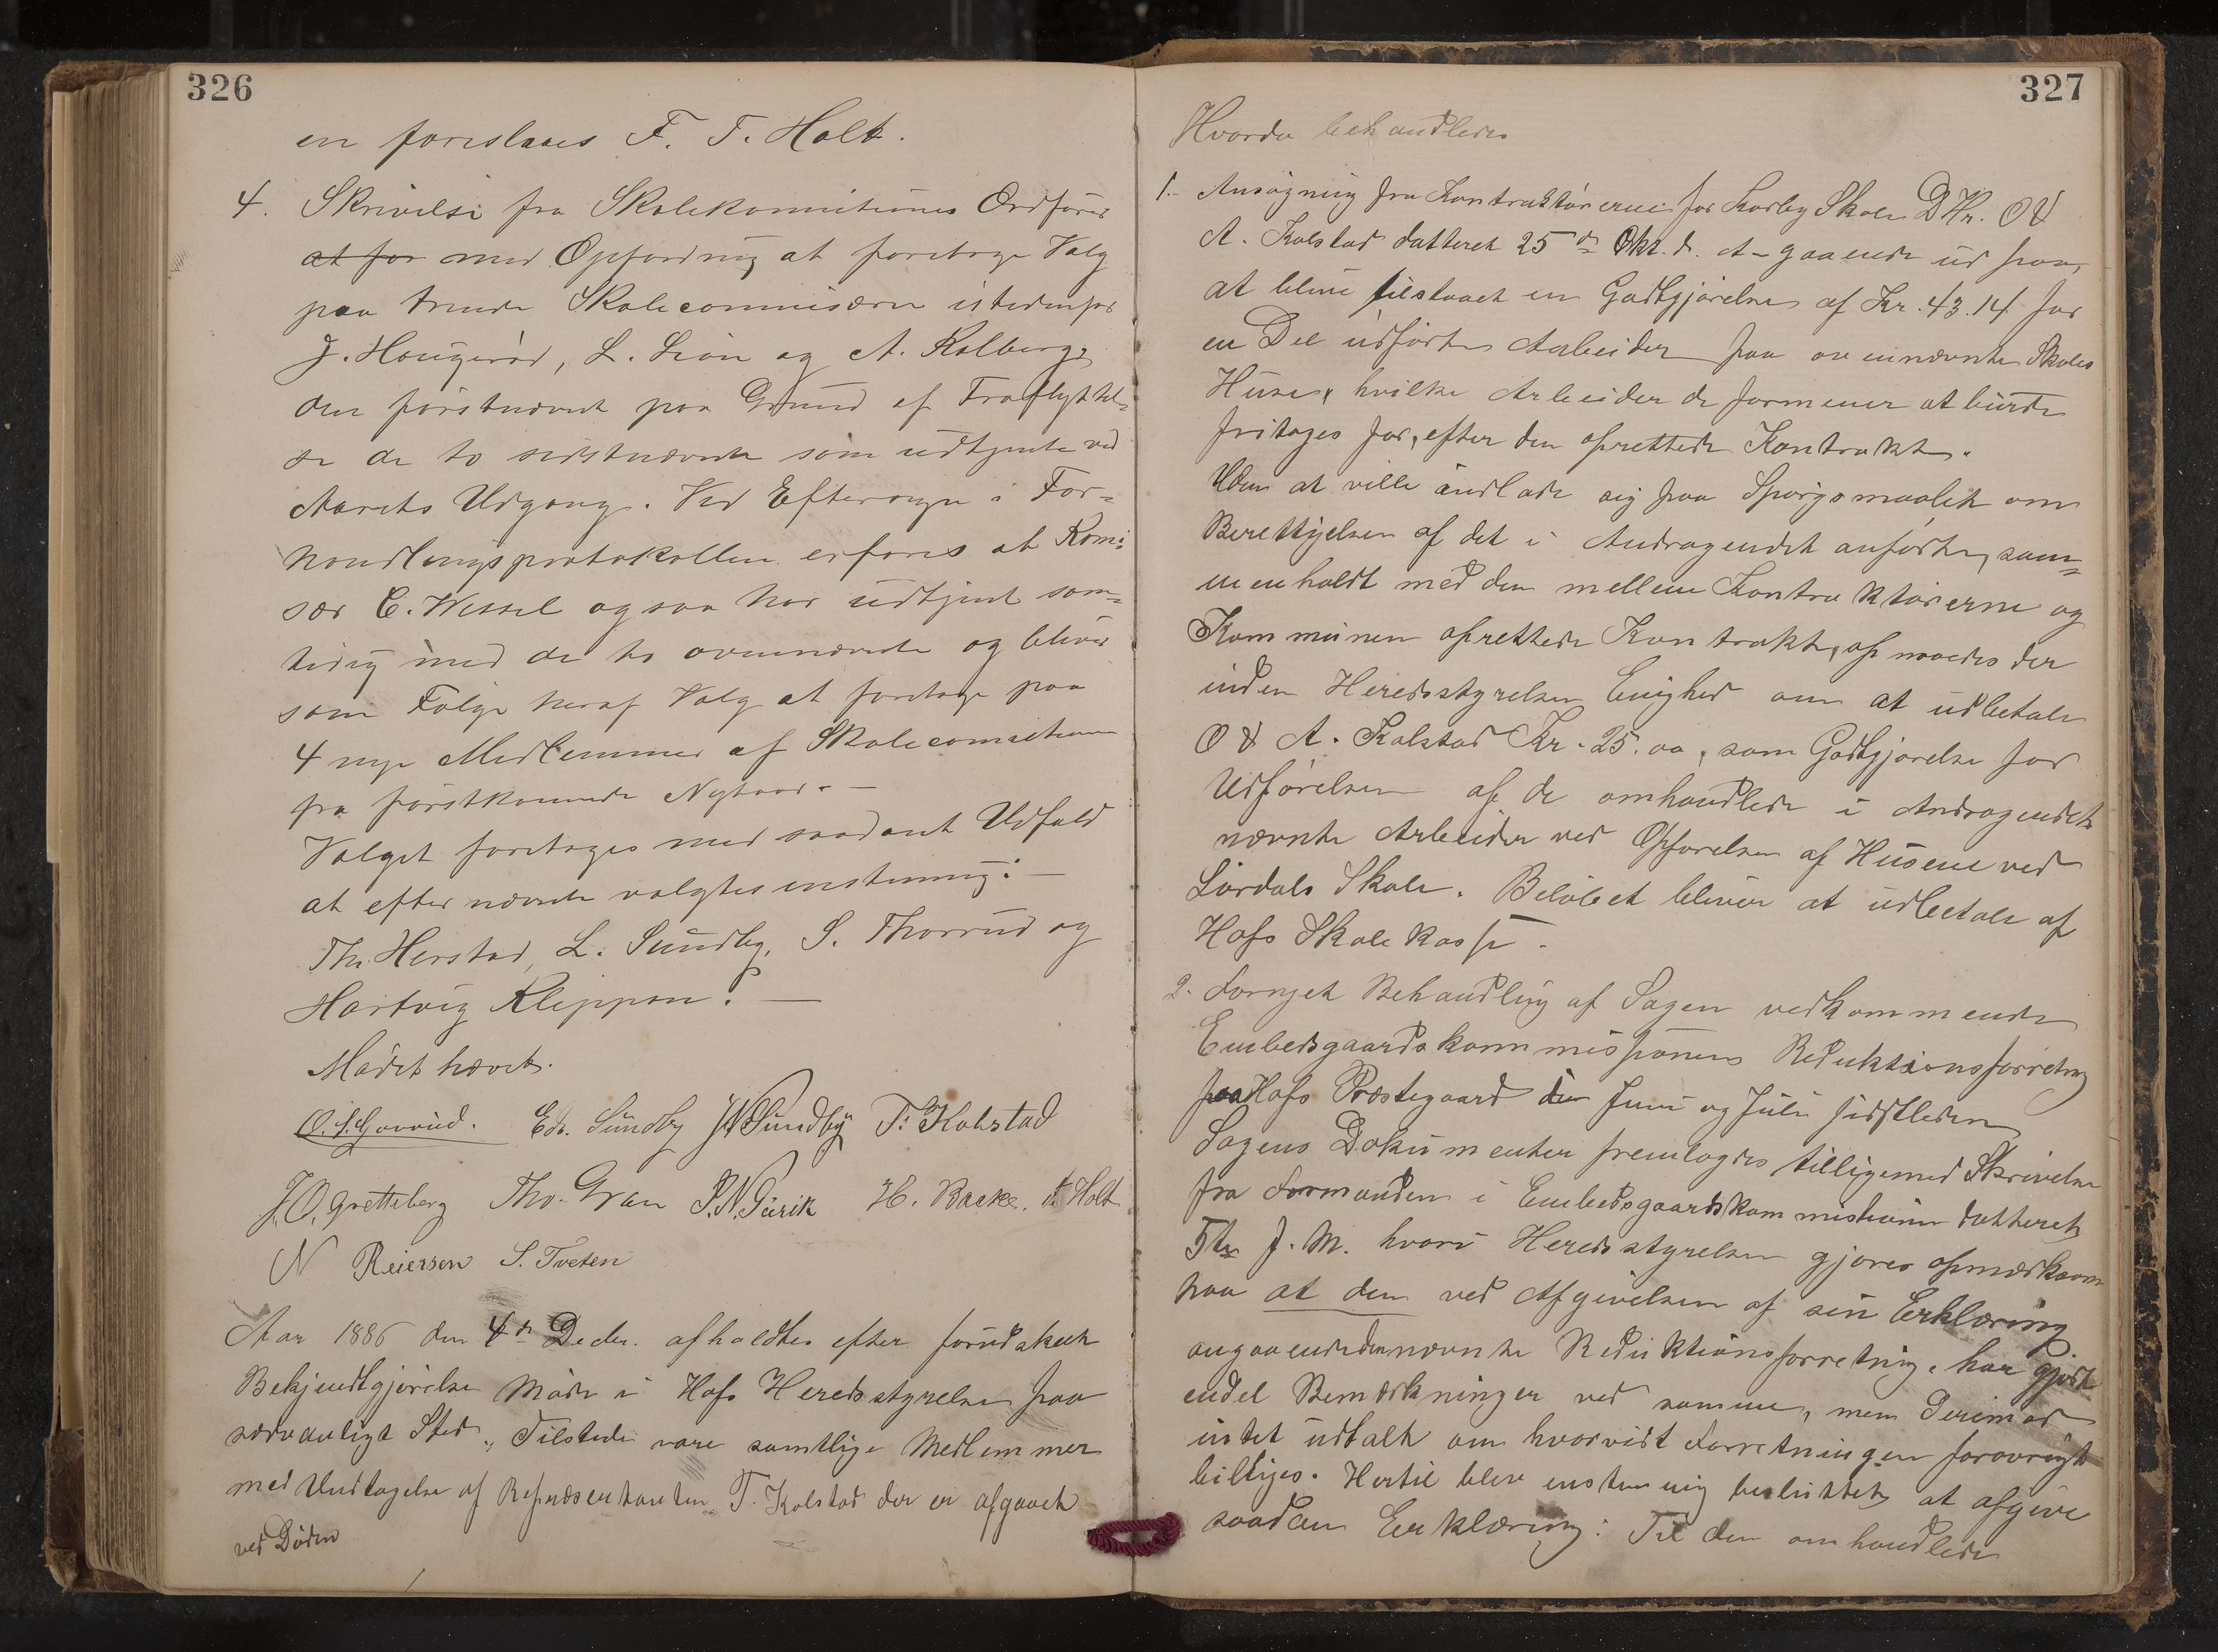 326
en foreslaaes F. T. Holt.
4. Skrivelse fra Skolekommitionens Ordfører
at for med Opfordring at foretage Valg
paa trende Skolecommisærer istedenfor
J. Hougerød, L. Lion og A. Kolberg,
den førstnævnte paa Grund af Fraflyttel=
se de to sidstnævnte som udtjente ved
Aarets Udgang. Ved Eftersyn i For=
handlingsprotokollen erfares at Komi=
sær C. Wessel ogsaa har udtjent sam=
tidig med de to ovennævnte og bliver
som Følge heraf Valg at foretage paa
4 nye Medlemmer af Skolecomitionen
fra førstkommende Nytaar. —
Valget foretages med saadant Udfald
at efternævnte valgtes enstemmig: —
Th. Herstad, L. Sundby, S. Thorrud og
Hartvig Kleppan. —
Mødet hævet.
Edv. Sundby T. Kolstad
J. O. Gretteberg Tho. Gran H. Bakke. A Holt
N Reiersen S. Tveten
Aar 1886 den 4de Decbr. afholdtes efter forudskeet
Bekjendtgjørelse Møde i Hofs Heredsstyrelse paa
sædvanligt Sted. Tilstede vare samtlige Medlemmer
med Undtagelse af Repræsentanten T. Kolstad der er afgaaet
ved Døden
327
Hvorda behandledes
1. Ansøgning fra Kontraktørerne for Skole D Hr. O &
A. Kolstad datteret 25de Okt. d. A. gaaende ud paa,
at blive tilstaaet en Godtgjørelse af Kr. 43.14 for
en Del udførte Arbeider paa ovennævnte Skoles
Huse, hvilke Arbeider de formener at burde
fritages for, efter den oprettede Kontrakt.
Uden at ville indlade sig paa Spørgsmaalet om
Berettigelsen af det i Andragendet anførte, sam=
menholdt med den mellem Kontraktørerne og
Kommunen oprettede Kontrakt, opnaaedes der
inden Heredsstyrelsen Enighed om at udbetale
O & A. Kolstad Kr. 25.00, som Godtgjørelse for
Udførelsen af de omhandlede i Andragendet
nævnte Arbeider ved Opførelsen af Husene ved
Skole. Beløbet bliver at udbetale af
Hofs Skolekasse.
2. Fornyet Behandling af Sagen vedkommende
Embedsgaardskommissionens Reduktionsforretning
paa Hofs Præstegaard i Juni og Juli sidstleden
Sagens Dokumenter fremlagdes tilligemed Skrivelse
fra Formanden i Embedsgaardskommissionen datteret
5te f. M. hvori Heredsstyrelsen gjøres opmærksom
paa at den ved Afgivelsen af sin Erklæring
angaaende den nævnte Reduktionsforretning, har gjort
endel Bemærkninger ved samme, men Derimod
intet udtalt om hvorvidt Forretningen forøvrigt
billiges. Hertil blev enstemmig besluttet at afgive
saadan Erklæring: Til den omhandlede